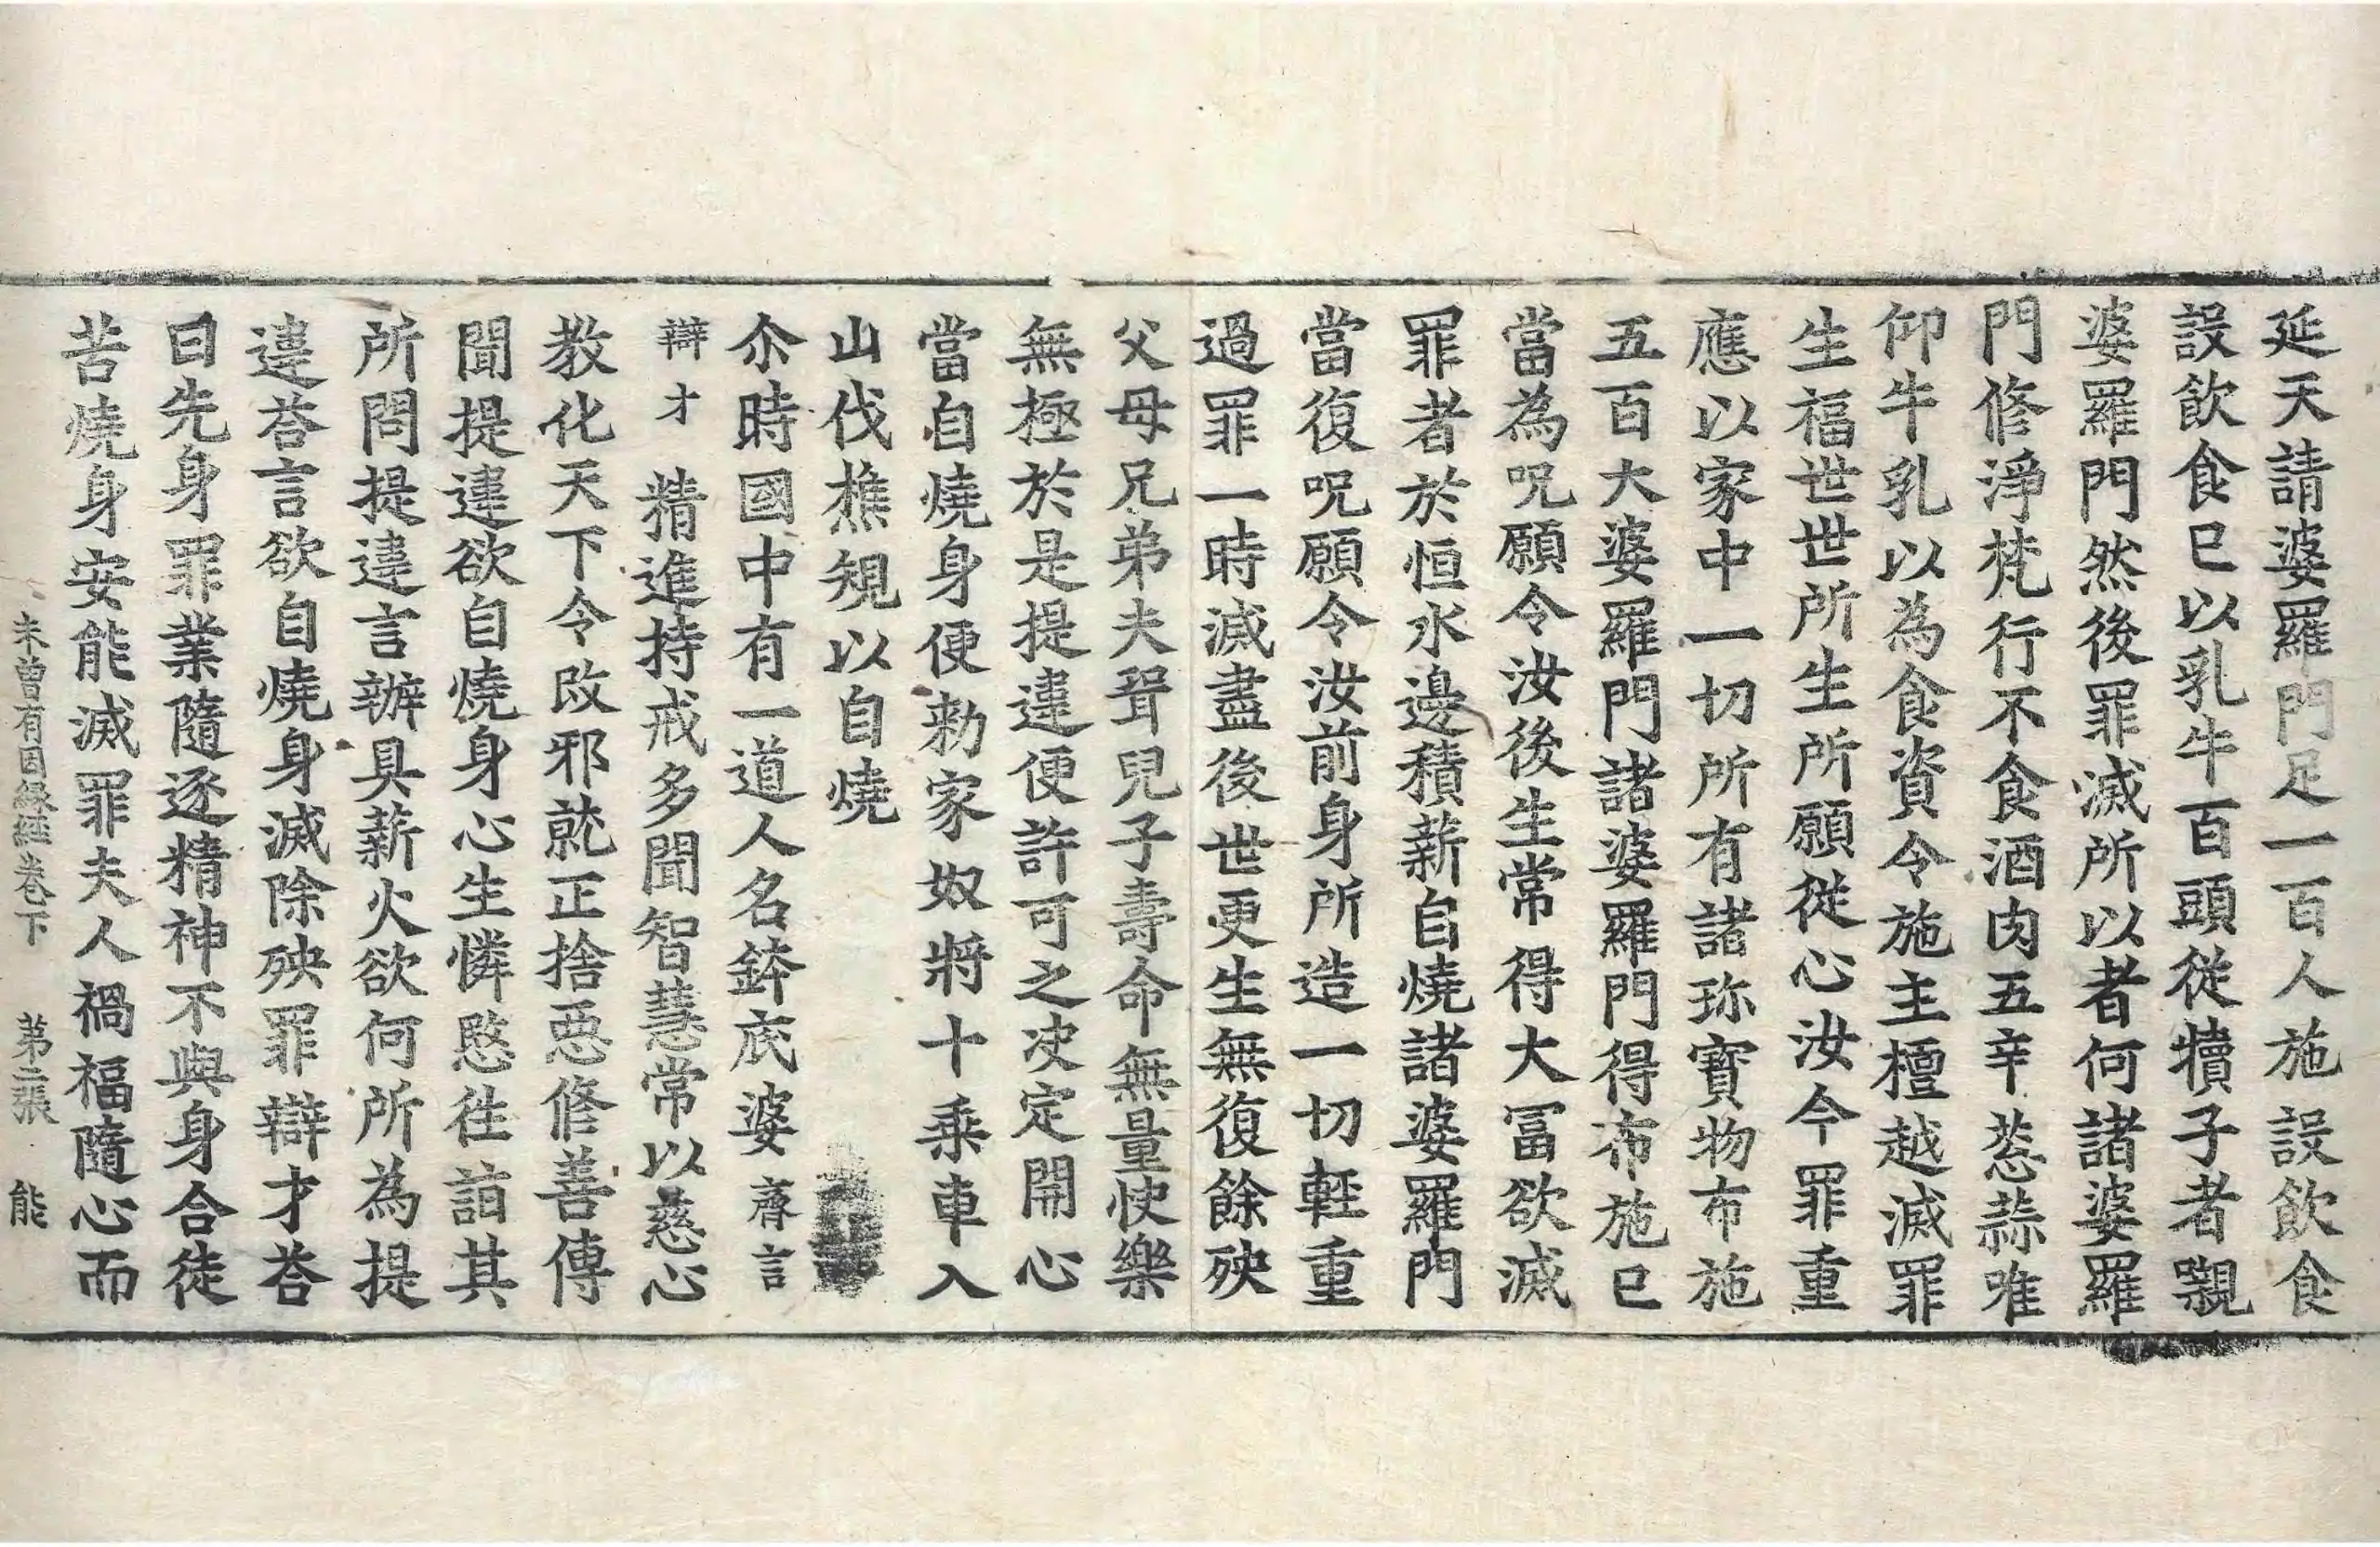 延天請婆羅門足一百人施設飲食
設飲食已以乳牛百頭從犢子者𮗚
婆羅門然後罪滅所以者何諸婆羅
門修淨梵行不食酒肉五辛葱蒜唯
仰牛乳以為食資令施主檀越滅罪
生福世世所生所願従心汝今罪重
應以家中一切所有諸珎寳物布施
五百大婆羅門諸婆羅門得布施已
當為呪願令汝後生常得大冨欲滅
罪者於恒水邊積薪自燒諸婆羅門
當復呪願令汝前身所造一切輕重
過罪一時滅盡後世更生無復餘殃
父母兄弟夫聟兒子壽命無量快樂
無極於是提違便許可之决定開心
當自燒身便勑家奴將十乗車入
山伐樵規以自燒
尒時國中有一道人名鉢底婆 齊言
辯才 精進持戒多聞智慧常以慈心
教化天下令改邪就正捨惡修善傳
聞提違欲自燒身心生憐愍往詣其
所問提違言辦具薪火欲何所為提
違荅言欲自燒身滅除殃罪辯才荅
曰先身罪業隨逐精神不與身合徒
苦燒身安能滅罪夫人禍福隨心而
未曾有因緣經卷下 第二張 能